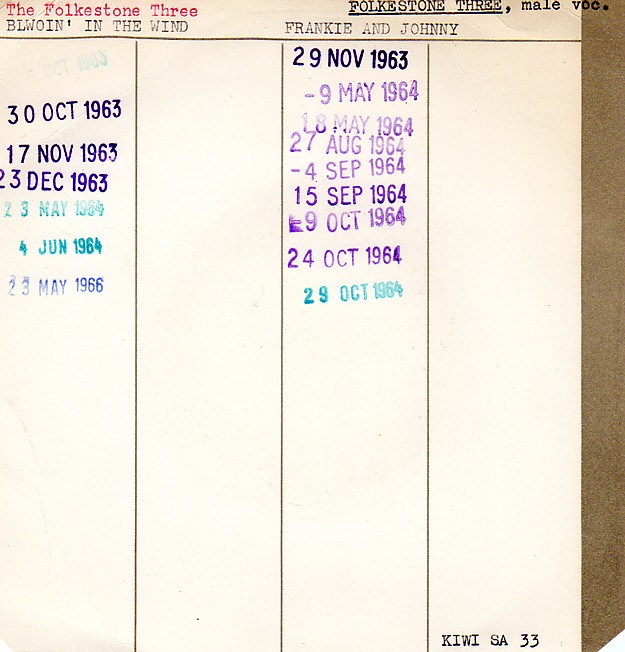 The Folkestone Three
FOLKESTONE THREE, male voc.
BLWOIN' IN THE WIND
FRANKIE AND JOHNNY
OCT 1963
30 OCT 1963
17 NOV 1963
23 DEC 1963
23 MAY 1964
4 JUN 1964
23 MAY 1966
29 NOV 1963
-9 MAY 1964
18 MAY 1964
27 AUG 1964
-4 SEP 1964
15 SEP 1964
-9 OCT 1964
24 OCT 1964
29 OCT 1964
KIWI SA 33